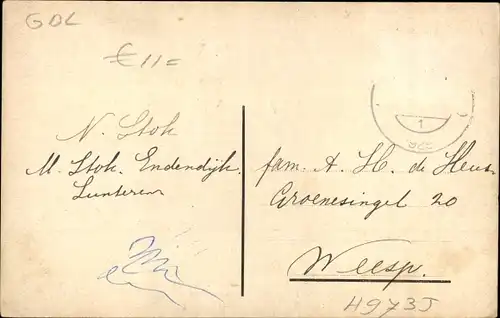 GDL
€ 11=
N. Stok
M. Stok. Endendijk.
Lunteren
fam. A. H. de Heus.
Groenesingel 20
Weesp.
H973J